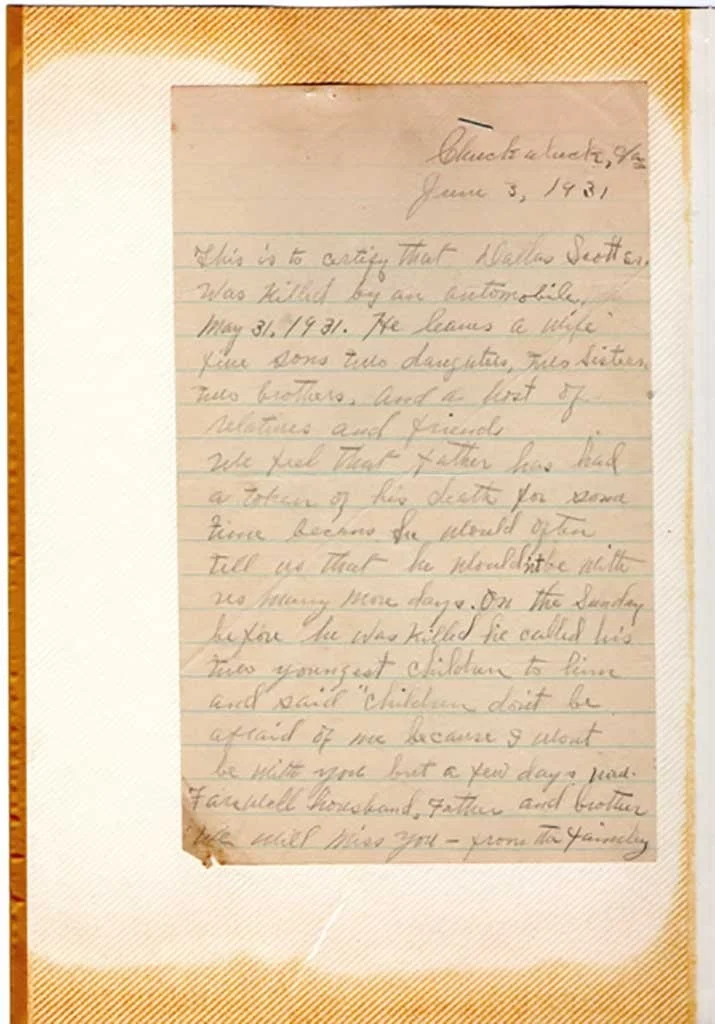 Chuckatuck, Va
June 3, 1931
This is to certify that Dallas Scott sr.
Was killed by an automobile,
May 31, 1931. He leaves a wife
five sons two daughters, two sisters,
two brothers, and a host of
relatives and friends
We feel that Father has had
a token of his death for some
time becaus he would often
tell us that he wouldn't be with
us many more days. On the Sunday
before he was killed he called his
two youngest children to him
and said "children don't be
afraid of me because I wont
be with you but a few days
Farwell housband, Father and brother
We will miss you – from the Faimley